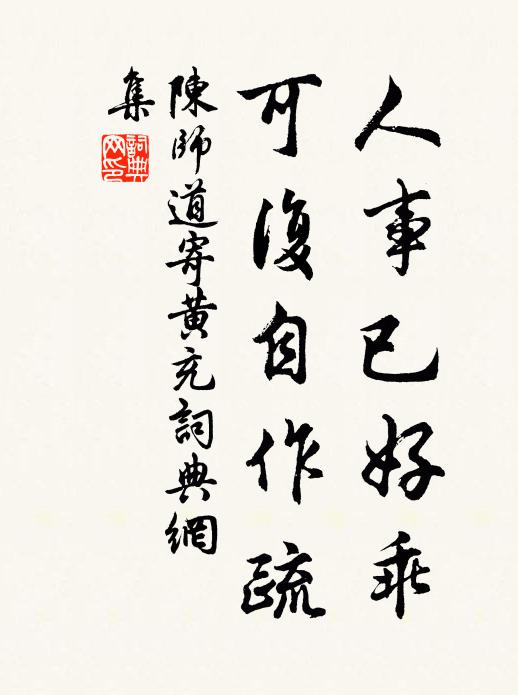 人事已好乖
可復自作疏
陳師道寄黃充詞典網
集
詞典網印